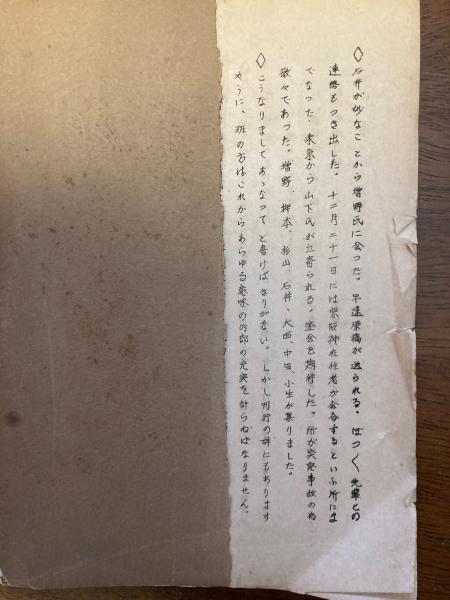 ◇石井が妙なことから増野氏に会つた。早速原稿が送られる。ぼつ〱先輩との
連絡もつき出した。十二月二十一日には京阪神在住者が会合するといふ所にま
でなつた。東京から山下氏が立寄られる。盛会を期待した。所が突発事故の為
散々であつた。増野、榊本、杉山、石井、大西、中田、小生が集りました。
◇こうなりましてあゝなつてと書けばきりがない。しかし刊行の辞にもあります
やうに、班の方はこれからあらゆる意味の内部の充実を計らねばなりません。